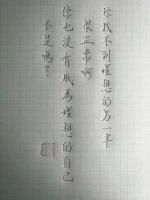 你找不到理想的另一半
很正常啊
你也没有成為理想的自己
不是嗎？